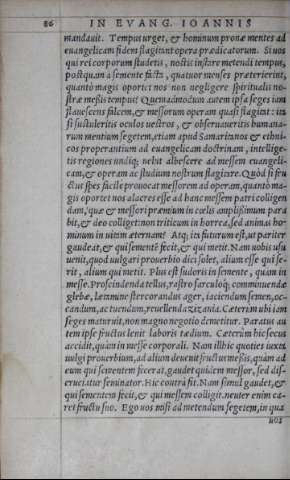 86 IN EVANG. IOANNIS
mandauit. Tempus urget, & hominum pronæ mentes ad
euangelicam fidem flagitant opera prædicatorum. Si uos
qui rei corporum studetis, nostis instare metendi tempus,
postquam a semente facta, quatuor menses præterierint,
quanto magis oportet nos non negligere spiritualis no-
stræ messis tempus? Quemadmodum autem ipsa seges iam
flauescens falcem, & messorum operam quasi flagitat: ita
si sustuleritis oculos uestros, & obseruaueritis humana-
rum mentium segetem, etiam apud Samaritanos & ethni-
cos properantium ad euangelicam doctrinam, intellige-
tis regiones undiq; uelut albescere ad messem euangeli-
cam, & operam ac studium nostrum flagitare. Quòd si fru
ctus spes facile prouocat messorem ad operam, quanto ma-
gis oportet nos alacres esse ad hanc messem patri colligen
dam, quæ & messori præmium in cœlis amplissimum para
bit, & deo colliget non triticum in horrea, sed animas ho-
minum in uitam æternam? Atq; ita futurum est, ut pariter
gaudeat, & qui sementē fecit, & qui metit. Nam nobis usu
uenit, quod uulgari prouerbio dici solet, alium esse qui se-
rit, alium qui metit. Plus est sudoris in semente, quam in
messe. Proscindenda tellus, rastro sarculoq; comminuendæ
glebæ, lætamine stercorandus ager, iaciendum semen, oc-
candum, ac tuendum, reuellenda zizania. Cæterum ubi iam
seges maturuit, non magno negotio demetitur. Paratus au
tem ipse fructus lenit laboris tædium. Cæterum hic secus
accidit, quàm in messe corporali. Nam illhic quoties iuxta
uulgi prouerbium, ad alium deuenit fructus messis, quàm ad
eum qui sementem fecerat, gaudet quidem messor, sed dis-
cruciatur seminator. Hic contrà fit. Nam simul gaudet, &
qui sementem fecit, & qui messem colligit, neuter enim ca-
ret fructu suo. Ego uos misi ad metendum segetem, in qua
uos